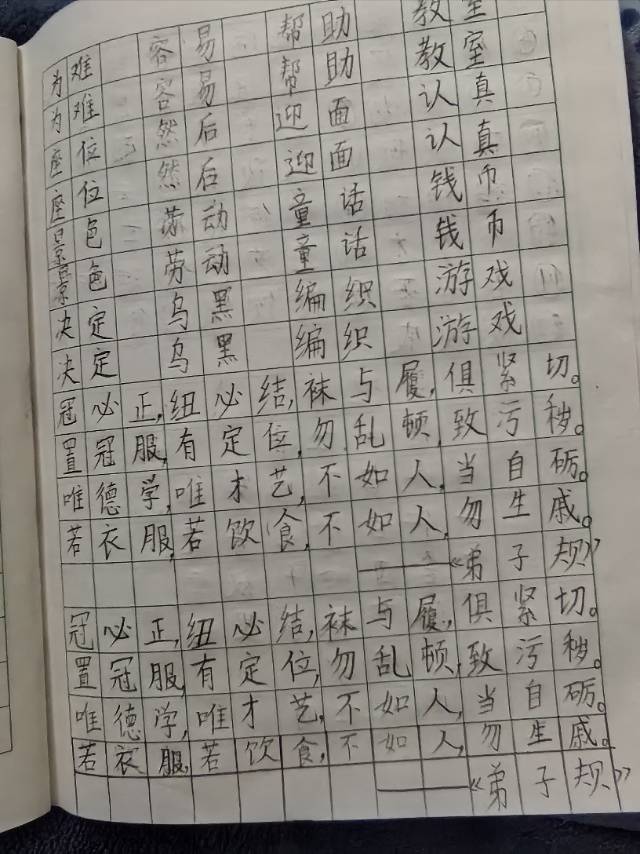 为难 容易 帮助 教室
为难 容易 帮助 教室
座位 然后 迎面 认真
座位 然后 迎面 认真
景色 劳动 童话 钱币
景色 劳动 童话 钱币
决定 乌黑 编织 游戏
决定 乌黑 编织 游戏
冠必正,纽必结,袜与履,俱紧切。
置冠服,有定位,勿乱顿,致污秽。
唯德学,唯才艺,不如人,当自砺。
若衣服,若饮食,不如人,勿生戚。
——《弟子规》
冠必正,纽必结,袜与履,俱紧切。
置冠服,有定位,勿乱顿,致污秽。
唯德学,唯才艺,不如人,当自砺。
若衣服,若饮食,不如人,勿生戚。
——《弟子规》